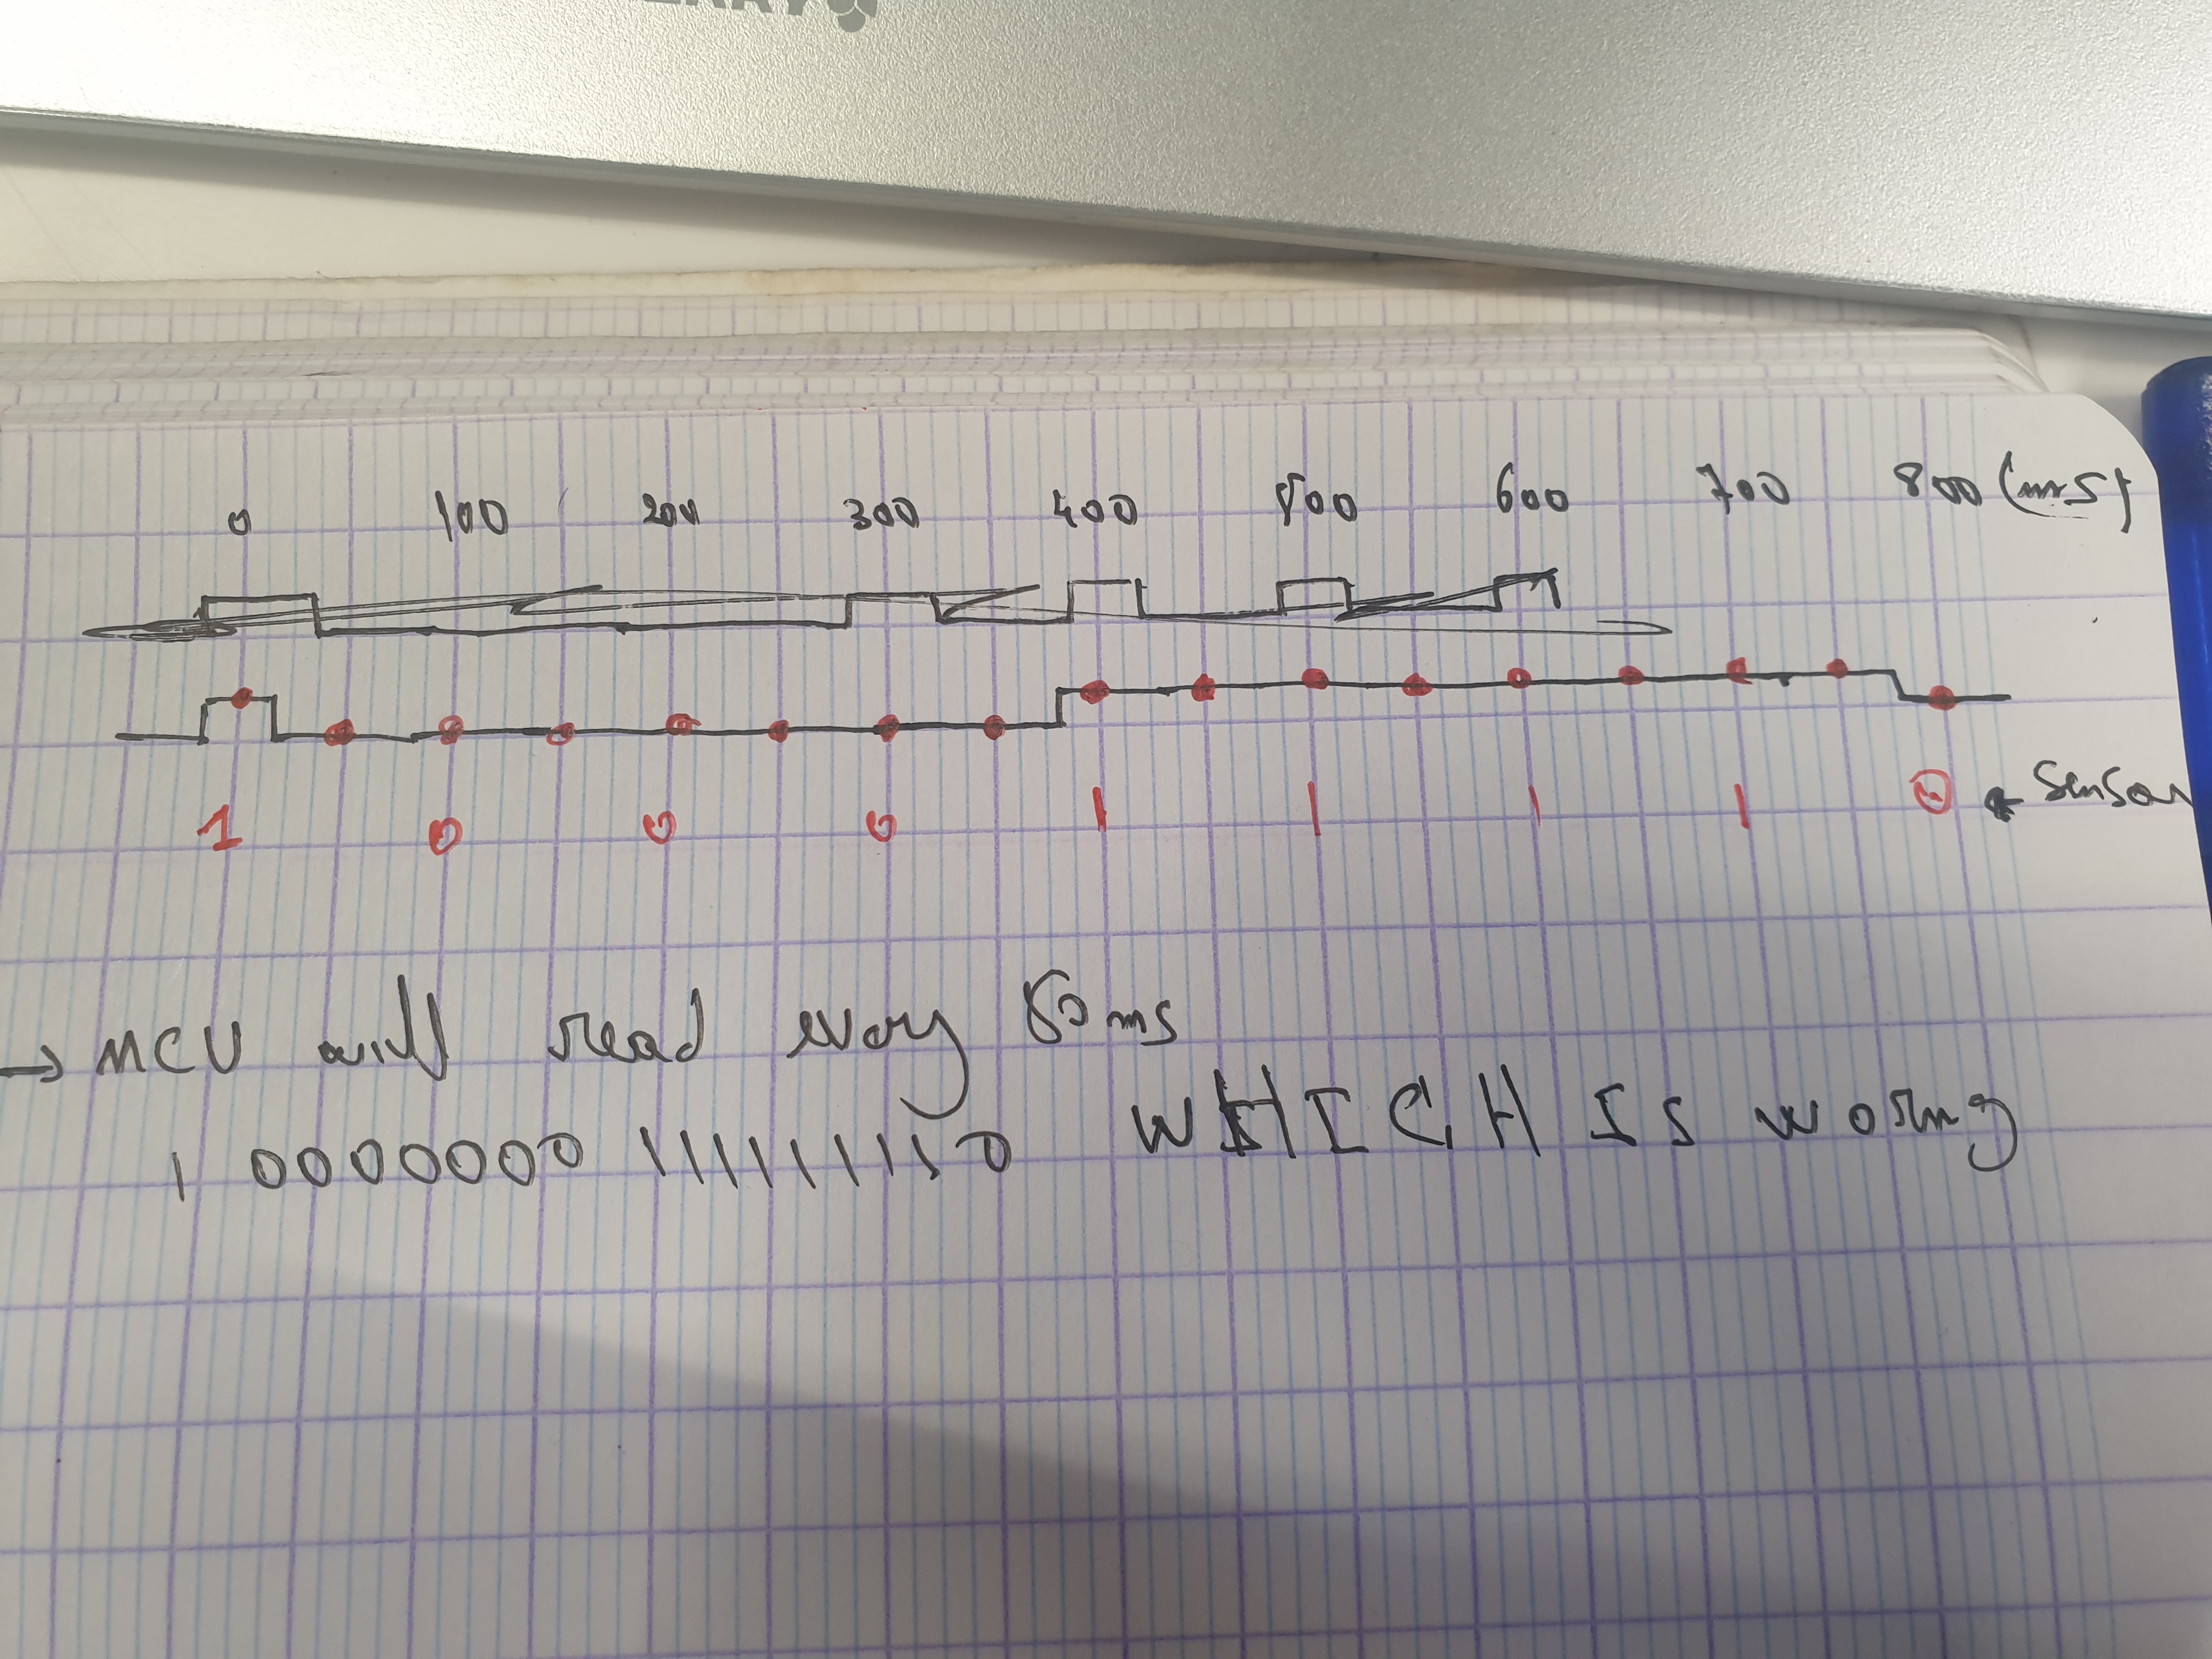 ERRY
0 100 200 300 400 500 600 700 800 (ms)
1 0 0 0 1 1 1 1 0 ← Sensor
→ MCU will read every 50 ms
1 0000000 1111111110 WHICH IS worng